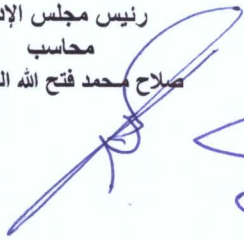 رئيس مجلس
محاسب
صلاح محمد فتح الله